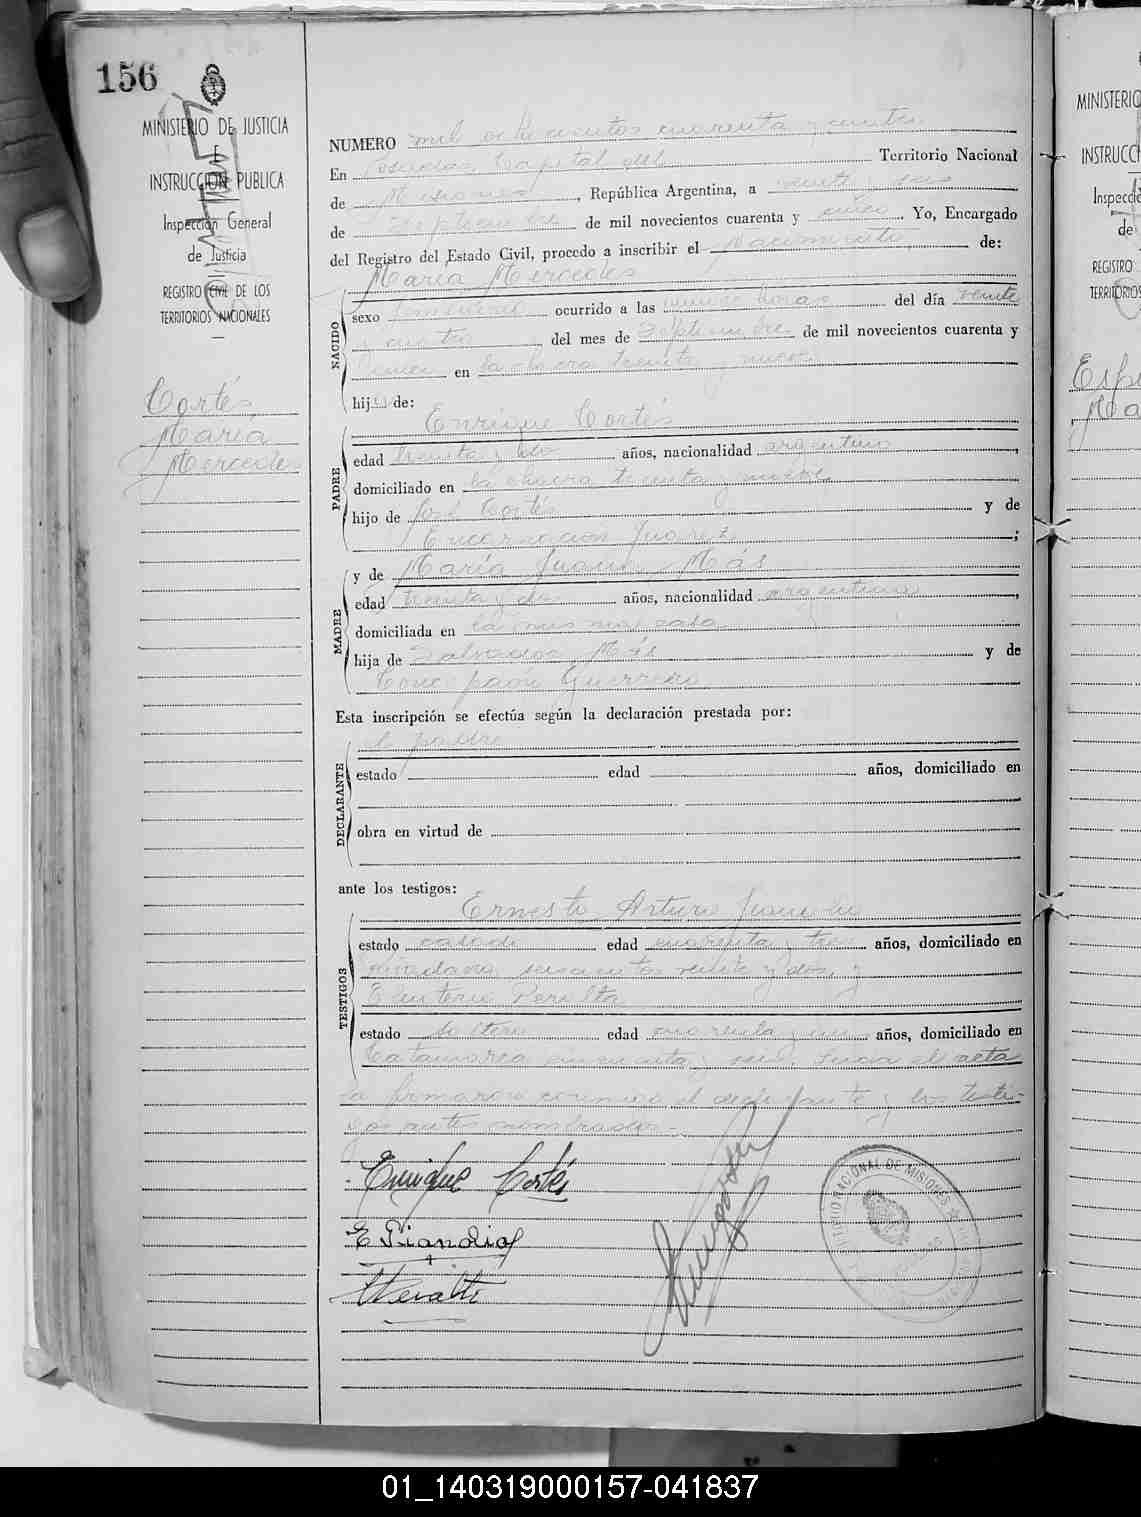 156
MINISTERIO DE JUSTICIA
E
INSTRUCCION PUBLICA
Inspección General
de Justicia
REGISTRO CIVIL DE LOS
TERRITORIOS NACIONALES
Cortés
María
Mercedes
NUMERO mil ochocientos cuarenta y
En Posadas Capital del Territorio Nacional
de Misiones, República Argentina, a veinte y seis
de Septiembre de mil novecientos cuarenta y cinco. Yo, Encargado
del Registro del Estado Civil, procedo a inscribir el Nacimiento de:
María Mercedes
NACIDO
sexo femenino ocurrido a las horas del día veinte
y cuatro del mes de Septiembre de mil novecientos cuarenta y
cinco en la chacra treinta y nueve
hija de:
Enrique Cortés
PADRE
edad treinta y años, nacionalidad argentino,
domiciliado en la chacra treinta y nueve
hijo de José Cortés y de
Encarnacion Juarez;
y de María Juana Más
MADRE
edad treinta y dos años, nacionalidad argentina,
domiciliada en la misma casa
hija de Salvador Más y de
Concepción Guerrero
Esta inscripción se efectúa según la declaración prestada por:
el padre
DECLARANTE
estado edad años, domiciliado en
obra en virtud de
ante los testigos:
Ernesto Arturo
TESTIGOS
estado casado edad cuarenta y tres años, domiciliado en
Rivadavia seiscientos veinte y dos, y
Eleuterio Peralta
estado soltero edad cuarenta y un años, domiciliado en
Catamarca cincuenta y seis. Leida el acta
la firmaron conmigo el declarante y los testi-
gos antes nombrados.-
Enrique Cortés
E
Peralta
TERRITORIO NACIONAL DE MISIONES
MINISTERIO
INSTRUCC
Inspecció
de
REGISTRO
TERRITORIOS
Esp
Ma
01_140319000157-041837